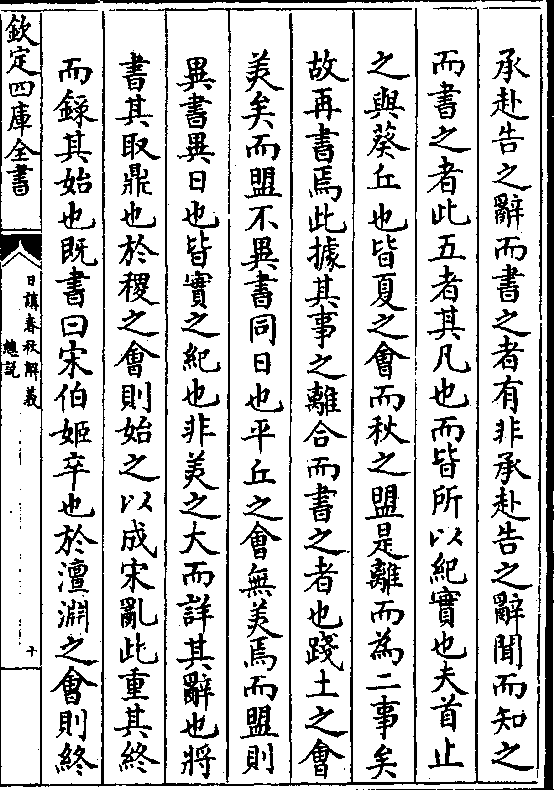 承赴告之辭而書之者有非承赴告之辭聞而知之
而書之者此五者其凡也而皆所以紀實也夫首止
之與葵丘也皆夏之會而秋之盟是離而為二事矣
故再書焉此據其事之離合而書之者也踐土之會
美矣而盟不異書同日也平丘之會無美焉而盟則
異書異日也皆實之紀也非美之大而詳其辭也將
書其取鼎也於稷之會則始之以成宋亂此重其終
而錄其始也既書曰宋伯姬卒也於澶淵之會則終
欽定四庫全書
日講春秋解義
總說
十